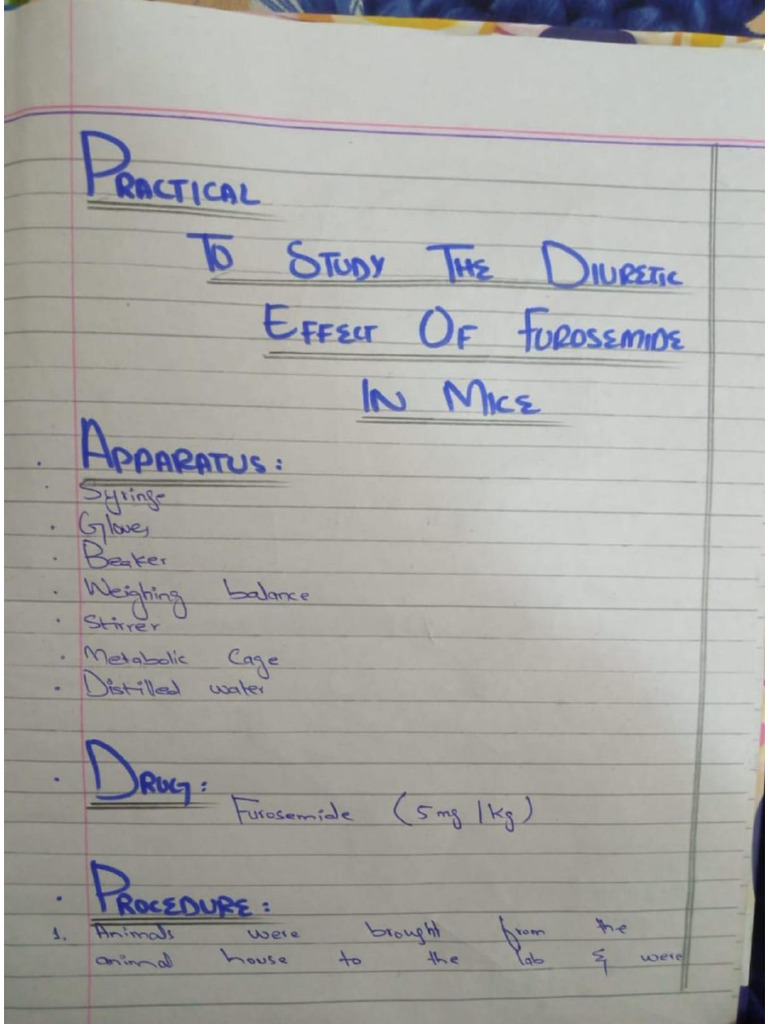 PRACTICAL
TO STUDY THE DIURETIC
EFFECT OF FUROSEMIDE
IN MICE
· APPARATUS:
· Syringe
· Gloves
· Beaker
· Weighing balance
· Stirrer
· Metabolic Cage
· Distilled water
· DRUG:
Furosemide (5 mg / Kg)
· PROCEDURE:
1. Animals were brought from the
animal house to the lab & were